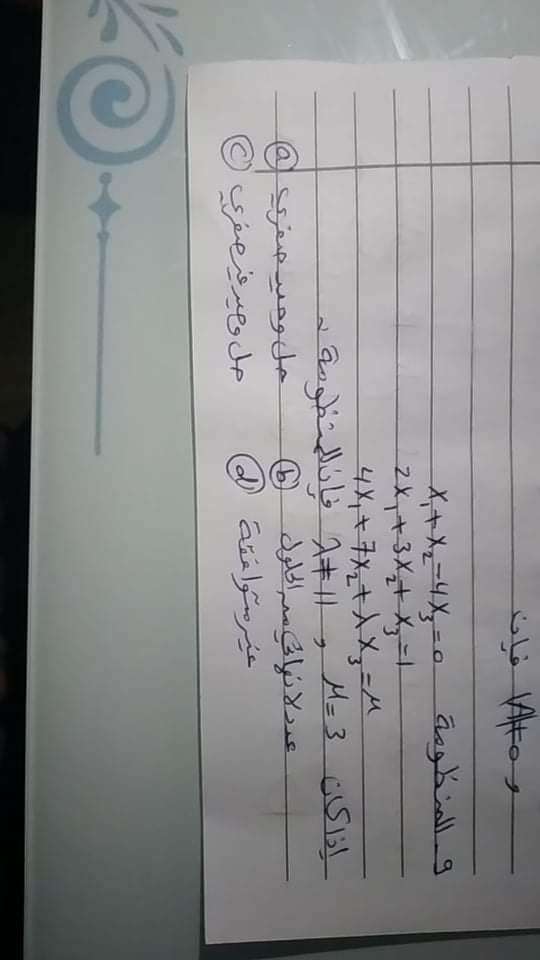 و |A|≠0 فإن
في المنظومة x₁+x₂-4x₃=0
2x₁+3x₂+x₃=1
4x₁+7x₂+λx₃=μ
إذا كان μ=3 و λ≠11 فإن المنظومة
ⓐ حل وحيد صفري ⓑ عدد لا نهائي من الحلول
ⓒ حل وحيد غير صفري ⓓ غير متوافقة